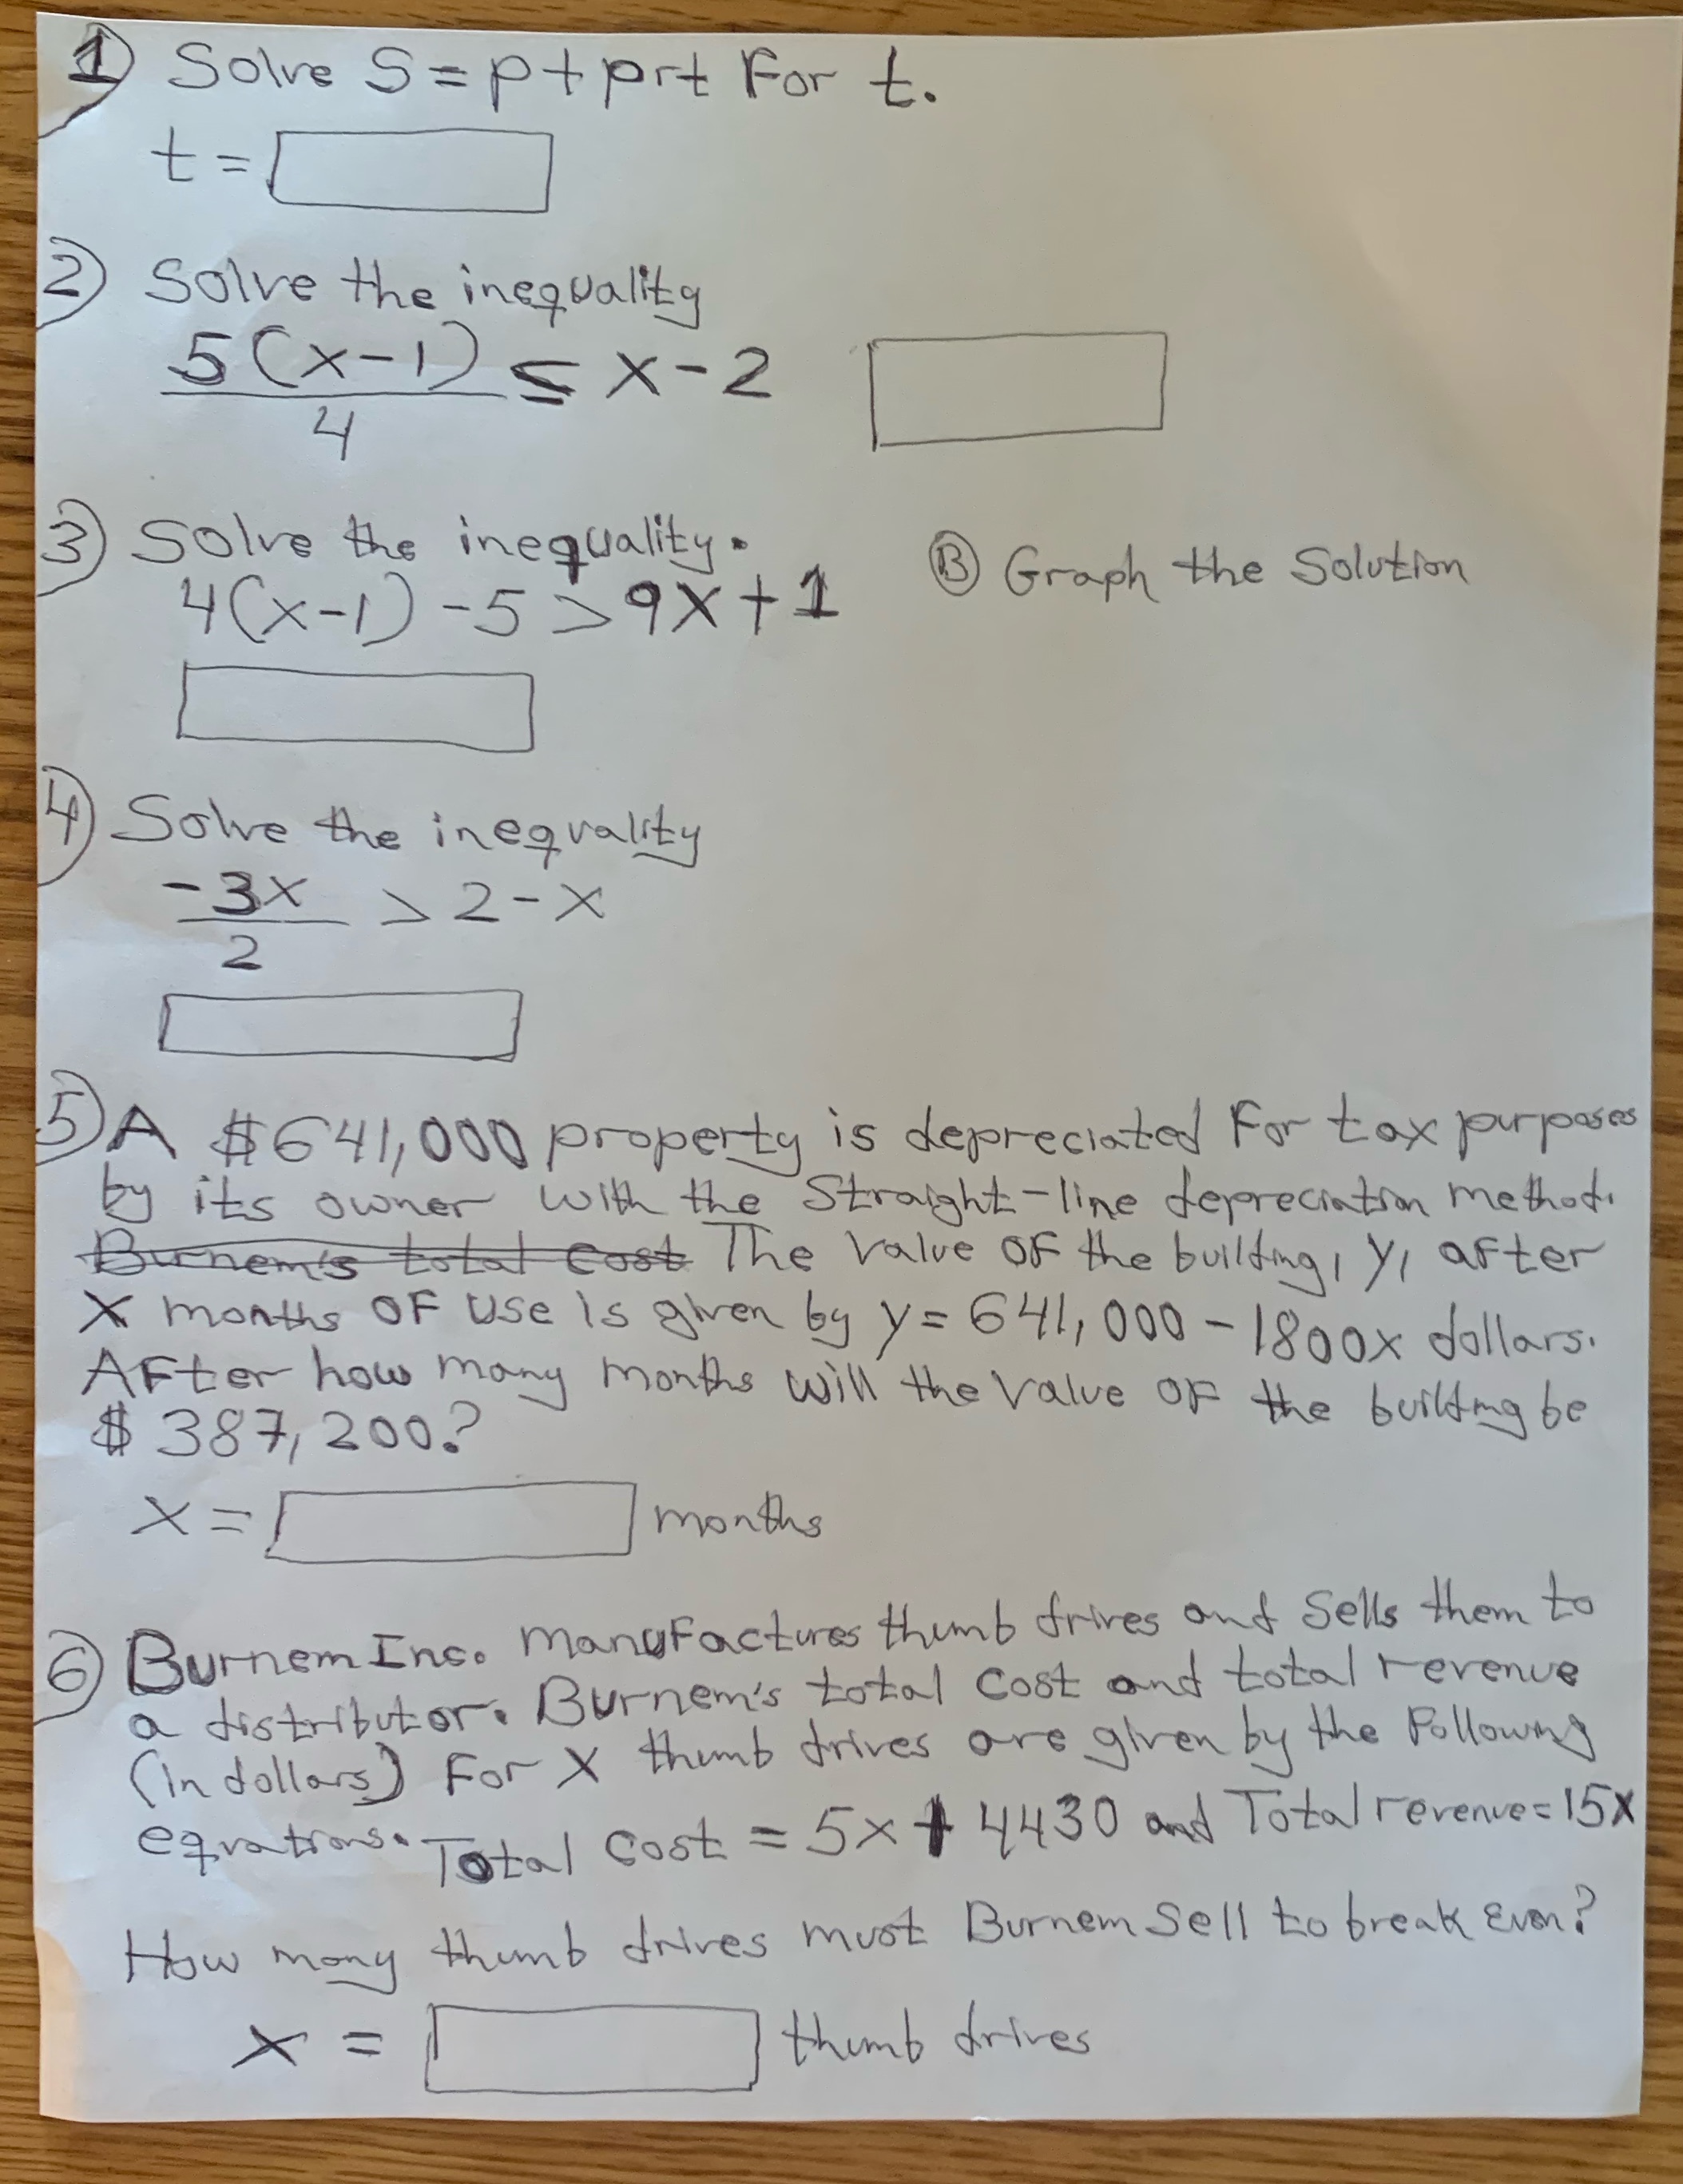 1) Solve S = p + prt For t.
t =
2) Solve the inequality
5(x-1)/4 ≤ x-2
3) Solve the inequality.
4(x-1) -5 > 9x+1
B Graph the Solution
4) Solve the inequality
-3x/2 > 2-x
5) A $641,000 property is depreciated For tax purposes
by its owner with the Straight-line depreciation method.
Burnem's total cost The value OF the building, y, after
x months OF use is given by y = 641,000 - 1800x dollars.
AFter how many months will the value OF the building be
$387,200?
x = months
6) Burnem Inc. manufactures thumb drives and sells them to
a distributor. Burnem's total cost and total revenue
(in dollars) For x thumb drives are given by the Following
equations. Total cost = 5x + 4430 and Total revenue = 15x
How many thumb drives must Burnem sell to break even?
x = thumb drives